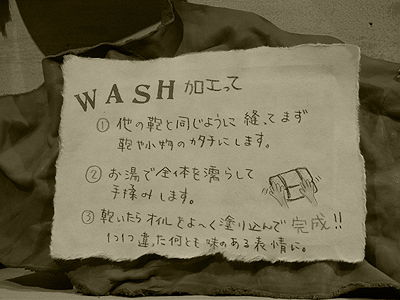 WASH加工って
① 他の鞄と同じように 縫ってまず
鞄や小物のカタチにします。
② お湯で全体を濡らして
手揉みします。
③ 乾いたらオイルをよ〜く塗り込んで 完成!!
1つ1つ違った何とも味のある表情に。